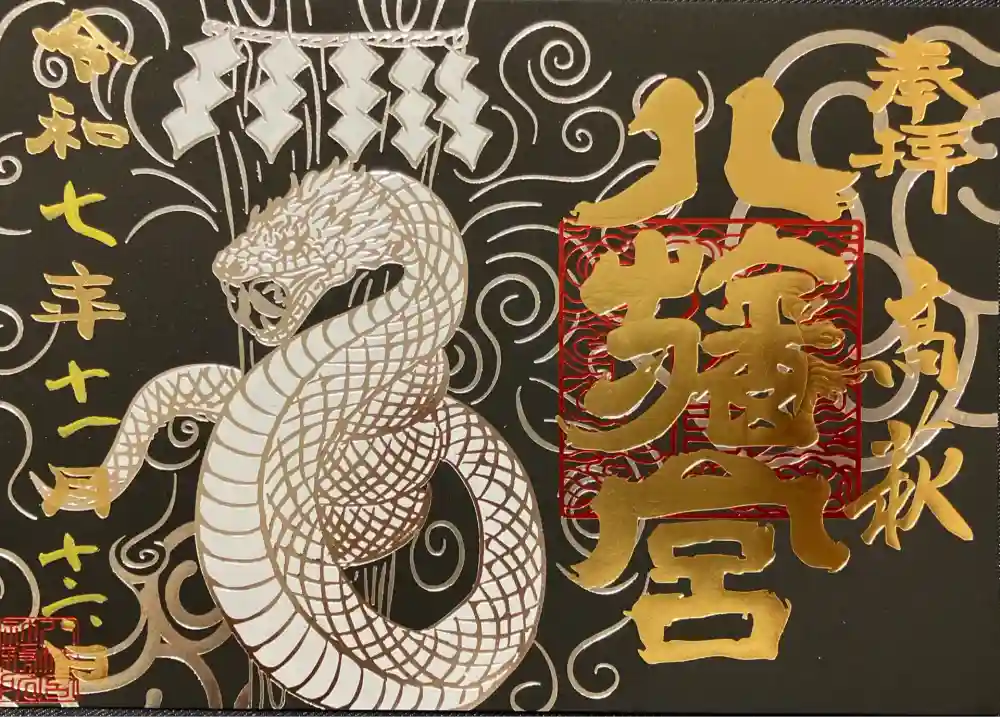 奉拝 高萩
八幡宮
令和七年十一月十二日